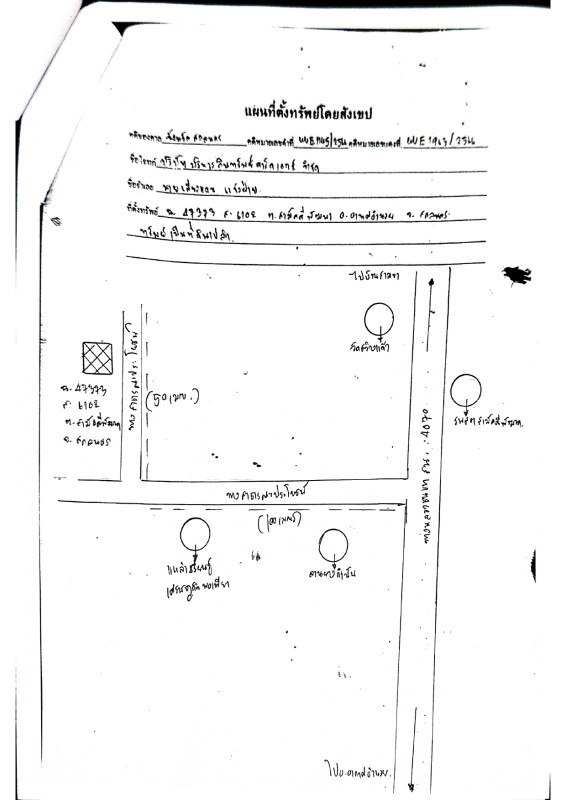 แผนที่ตั้งทรัพย์โดยสังเขป
คดีของศาล จังหวัดสกลนคร คดีหมายเลขดำที่ คดีหมายเลขแดงที่ ผบE 1963/2564
ชื่อโจทก์ บริษัท บริหารสินทรัพย์ จำกัด
ชื่อจำเลย นาย
ที่ตั้งทรัพย์ ฉ. 47373 ต.สามัคคีพัฒนา อ.อากาศอำนวย จ.สกลนคร
ทรัพย์เป็นที่ดินเปล่า
ไปบ้าน
วัดสว่างแก้ว
ทางสาธารณประโยชน์
(50 เมตร)
ฉ. 47373
ต.สามัคคีพัฒนา
จ.สกลนคร
รพสต สามัคคีพัฒนา
ทางหลวงหมายเลข 4070
ทางสาธารณประโยชน์
(100 เมตร)
แหล่งเรียนรู้
เศรษฐกิจพอเพียง
ไปอ.อากาศอำนวย